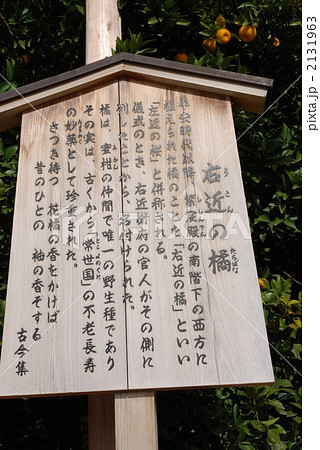 右近の橘
うこんのたちばな
平安時代以降、紫宸殿の南階下の西方に
植えられた橘のことで「右近の橘」といい
「左近の桜」と併称される。
儀式のとき、右近衛府の官人がその側に
列したことから、名付けられた。
橘は、蜜柑の仲間で唯一の野生種であり
みかん
その実は、古くから「常世国」の不老長寿
とこよのくに
の妙薬として珍重された。
さつき待つ 花橘の香をかげば
昔のひとの 袖の香ぞする
古今集
2131963